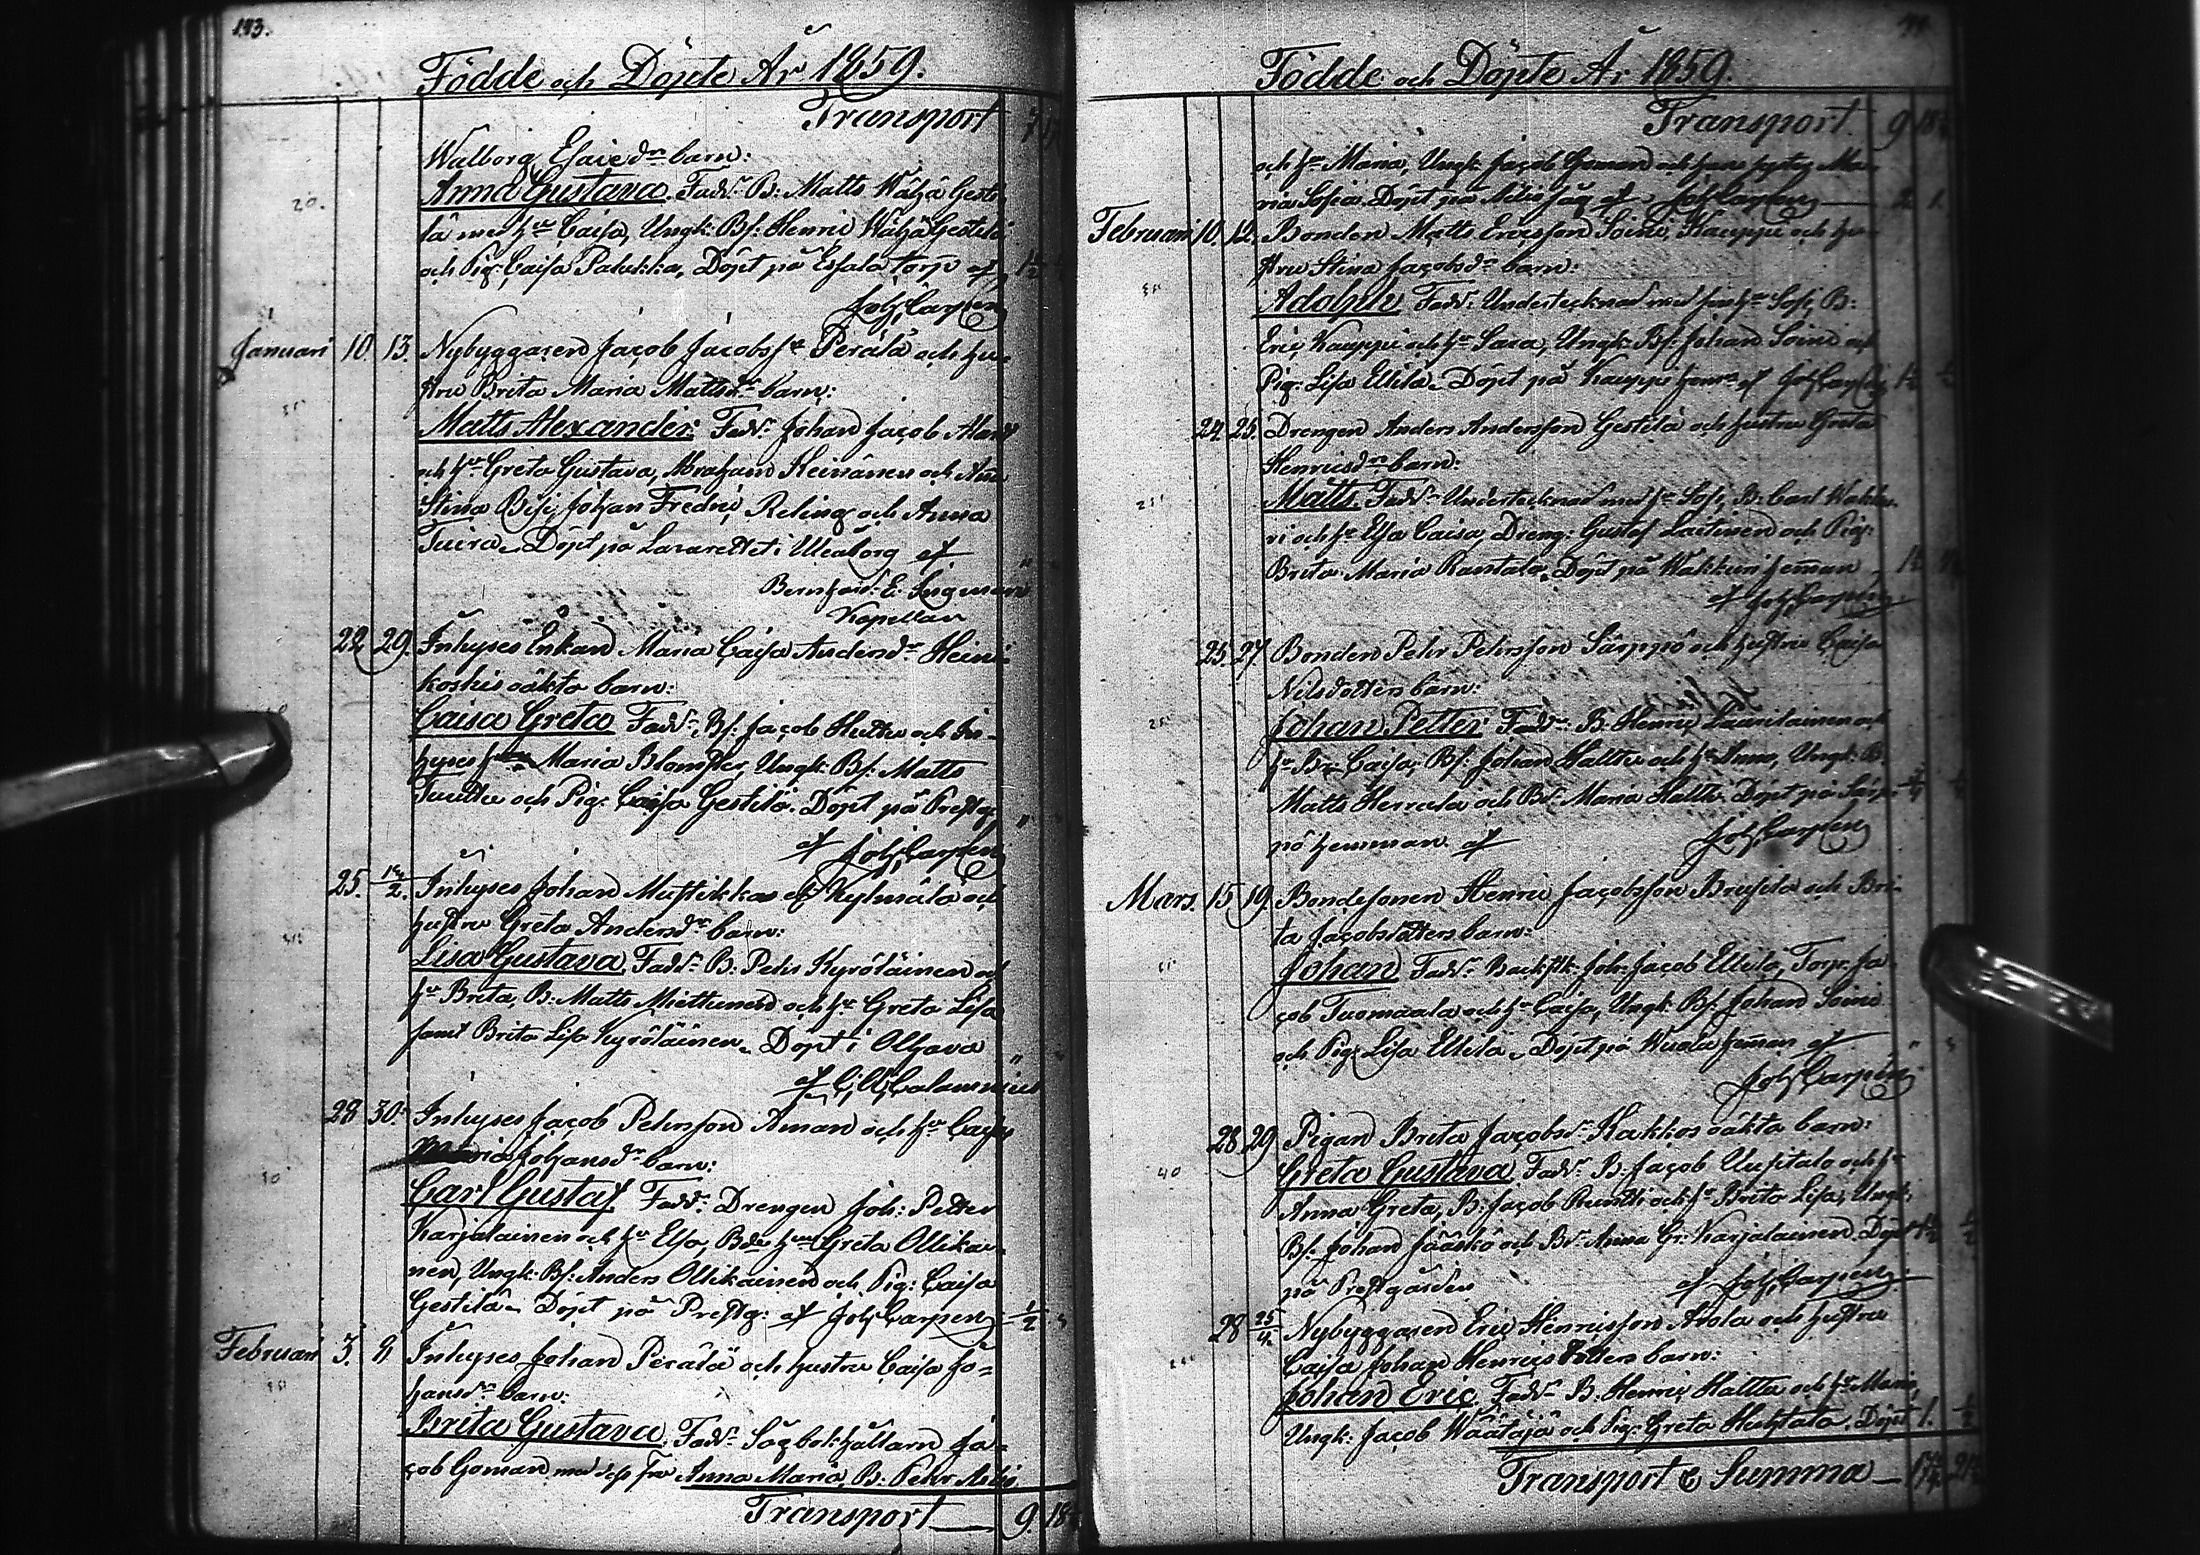 193.
Födde och Döpte År 1859.
Transport
Walborg Esaiedr barn:
20. Anna Gustava. Fadr B: Matts Wäljä Gesti-
lä med hu Caisa, Ungk: Bs: Henric Wäljä Gestilä
och Pig: Caisa Palukka, Döpt på Esfala torp af
Joh Carpen
Januari 10. 13. Nybyggaren Jacob Jacobsn Perälä och hu-
stru Brita Maria Mattsdr barn:
Matts Alexander. Fadr Johan Jacob
och hu Greta Gustava, Abraham Heinänen och Anna
Stina Johan Fredric Reling och Anna
Tuira. Döpt på Lazarettet i Uleåborg af
Bernhard E: Ingman
Kapellan
22. 29. Inhyses Enkan Maria Caisa Andersdr Heini-
koskis oäkta barn:
Caisa Greta Fadr Bs: Jacob Huttu och In-
hyses Maria Blomster, Ungk: Bs: Matts
Tuuttu och Pig: Caisa Gestilä. Döpt på Prestg:
af Joh Carpen
25. 14/2. Inhyses Johan Mustikka Kylmälä och
hustru Greta Andersdr barn:
Lisa Gustava. Fadr B: Petr Kyröläinen och
hu Brita, B: Matts Miettunen och hu Greta Lisa
samt Brita Lisa Kyröläinen. Döpt i Olhava
af Calamnius
28 30. Inhyses Jacob Petersson Åman och hu Caisa
Maria Johansdr barn:
Carl Gustaf. Fadr Drengen Joh: Petter
Karjalainen och hu Elsa, Greta Ollikai-
nen, Ungk: Bs: Anders Ollikainen och Pig: Caisa
Gestilä. Döpt på Prestg: af Joh Carpen 1/2
Februari 3. 9 Inhyses Johan Perälä och hustru Caisa Jo-
hansdr barn:
Brita Gustava. Fadr Sågbokhållarn Ja-
cob Goman med dess fru Anna Maria, B: Pehr
Transport 9. 18
Födde och Döpte År 1859.
Transport 9 18
och hu Maria, Ungk: Jacob Goman och Ma-
ria Sofia. Döpt på af Joh Carpen 2 1.
Februari 10. 12. Bonden Matts Ericsson Soini Kauppi och hu-
stru Stina Jacobsdr barn:
Adolph. Fadr Undertecknad med hu Sofi, B:
Eric Kauppi och hu Sara, Ungk: Bs: Johan Soini och
Pig: Lisa Ellilä. Döpt på Kauppi hemn af Joh Carpen 1½
24. 25. Drengen Anders Andersson Gestilä och hustru Greta
Henricsdrs barn:
Matts. Fadr Undertecknad med hu Sofi, B: Carl Wakku-
ri och hu Elsa Caisa, Dreng: Gustaf Laitinen och Pig:
Brita Maria Rantala. Döpt på Wakkuri hemman
af Joh Carpen
25. 27 Bonden Petr Petersson Särppö och hustru Caisa
Nilsdotters barn:
Johan Petter. Fadr B. Henric Lauritainen och
hu Br: Caisa, Bs: Johan Hattu och hu Anna, Ungk: B.
Matts Herrala och Bdr Maria Hattu. Döpt på Särp-
pö hemman af Joh Carpen
Mars. 15 19. Bondesonen Henric Jacobsson och Bri-
ta Jacobsdotters barn:
Johan Fadr Backstk: Joh: Jacob Ellilä, Torp: Ja-
cob Tuomaala och hu Caisa, Ungk: Bs: Johan Soini
och Pig: Lisa Ellilä. Döpt på Wuala hemman af
Joh Carpen
28 29. Pigan Brita Jacobsdr Kakkos oäkta barn:
40 Greta Gustava Fadr B. Jacob Uusitalo och hu
Anna Greta, B: Jacob och hu Brita Lisa, Ungk:
Bs: Johan Jääskö och Bdr Anna Gr: Karjalainen. Döpt
på Prestgården af Joh Carpen
28 25/4. Nybyggaren Eric Henricsson Atola och hustru
Caisa Johan Henricsdotters barn:
Johan Eric. Fadr B. Henric Hattu och hu Maria,
Ungk: Jacob Wäätäjä och Pig: Greta Huhtala. Döpt 1. 1/2
Transport & Summa